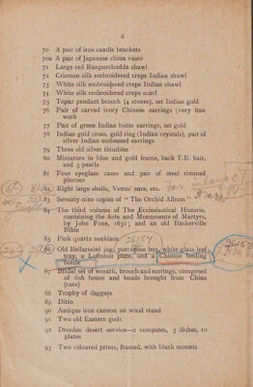 6
70 A pair of iron candle brackets
70A A pair of Japanese china vases
71 Large red Ranporchudda shawl
72 Crimson silk embroidered crepe Indian shawl
73 White silk embroidered crepe Indian shawl
74 White silk embroidered crepe scarf
75 Topaz pendant brooch (4 stones), set Indian gold
76 Pair of carved ivory Chinese earrings (very fine
work
77 Pair of green Indian beetle earrings, set gold
78 Indian gold cross, gold ring (Indian crystals), pair of
silver Indian embossed earrings
79 Three old silver thimbles
80 Miniature in blue and gold frame, back T.B. hair,
and 3 pearls
81 Four eyeglass cases and pair of steel rimmed
82 Eight large shells, Venus' ears, etc.
83 Seventy-nine copies of "The Orchid Album"
84 The third volume of The Ecclesiastical Historie,
containing the Acts and Monuments of Martyrs,
by John Foxe, 1631; and an old Baskerville
Bible
85 Pink quartz necklace 26157
86 Old Bellarmini jug, porcupine box, white glass leaf
tray, a Lowestoft plate, and a Chinese feeding
bottle
87 Bridal set of wreath, brooch and earrings, composed
of fish bones and beads brought from China
(rare)
88 Trophy of daggers
89 Ditto
90 Antique iron cannon on wood stand
91 Two old Eastern gods
92 Dresden desert service—2 compotes, 3 dishes, 10
plates
93 Two coloured prints, framed, with black mounts